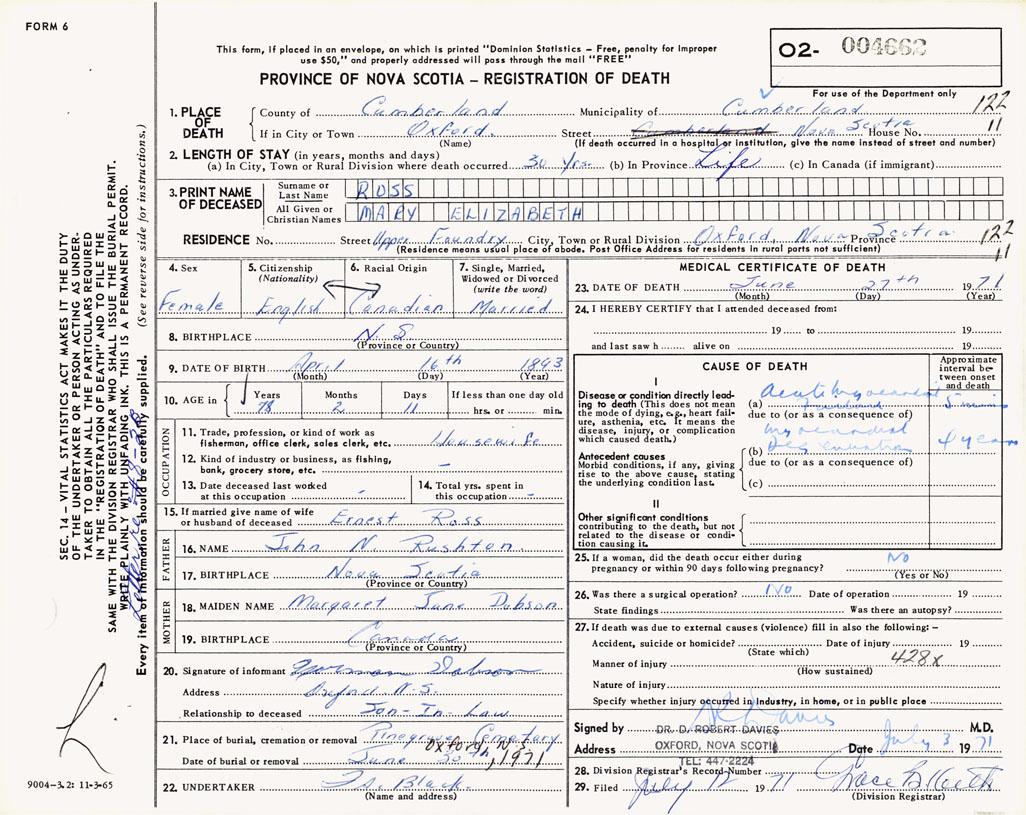 FORM 6
This form, if placed in an envelope, on which is printed "Dominion Statistics – Free, penalty for improper
use $50," and properly addressed will pass through the mail "FREE"
PROVINCE OF NOVA SCOTIA – REGISTRATION OF DEATH
02- 004662
For use of the Department only
1. PLACE OF DEATH
County of Cumberland Municipality of Cumberland 122
If in City or Town Oxford. Street Cumberland Nova Scotia House No. 11
(Name) (If death occurred in a hospital or institution, give the name instead of street and number)
2. LENGTH OF STAY (in years, months and days)
(a) In City, Town or Rural Division where death occurred 30 yrs. (b) In Province Life (c) In Canada (if immigrant)
3. PRINT NAME OF DECEASED
Surname or Last Name ROSS
All Given or Christian Names MARY ELIZABETH
RESIDENCE No. Street Upper Foundry City, Town or Rural Division Oxford, Nova Scotia Province 122
(Residence means usual place of abode. Post Office Address for residents in rural parts not sufficient) 11
4. Sex Female
5. Citizenship (Nationality) English
6. Racial Origin Canadian
7. Single, Married, Widowed or Divorced (write the word) Married
8. BIRTHPLACE N.S.
(Province or Country)
9. DATE OF BIRTH April 16th 1893
(Month) (Day) (Year)
10. AGE in Years Months Days If less than one day old
78 2 11 hrs. or min.
OCCUPATION
11. Trade, profession, or kind of work as
fisherman, office clerk, sales clerk, etc. Housewife
12. Kind of industry or business, as fishing,
bank, grocery store, etc. –
13. Date deceased last worked
at this occupation -
14. Total yrs. spent in
this occupation -
15. If married give name of wife
or husband of deceased Ernest Ross
FATHER
16. NAME John N. Rushton.
17. BIRTHPLACE Nova Scotia
(Province or Country)
MOTHER
18. MAIDEN NAME Margaret June Dobson
19. BIRTHPLACE Canada
(Province or Country)
20. Signature of informant Norman Dobson
Address Oxford N.S.
Relationship to deceased Son-In-Law
21. Place of burial, cremation or removal Pinegrove Cemetery
Oxford, N.S.
Date of burial or removal June 30th, 1971
22. UNDERTAKER Black.
(Name and address)
MEDICAL CERTIFICATE OF DEATH
23. DATE OF DEATH June 27th 1971
(Month) (Day) (Year)
24. I HEREBY CERTIFY that I attended deceased from:
19 to 19
and last saw h alive on 19
CAUSE OF DEATH
Approximate interval between onset and death
I
Disease or condition directly leading to death (This does not mean the mode of dying, e.g., heart failure, asthenia, etc. It means the disease, injury, or complication which caused death.)
(a) Acute Myocardial 5 min
due to (or as a consequence of)
Antecedent causes
Morbid conditions, if any, giving rise to the above cause, stating the underlying condition last.
myocardial
(b) Degeneration 4 years
due to (or as a consequence of)
(c)
II
Other significant conditions
contributing to the death, but not related to the disease or condition causing it.
25. If a woman, did the death occur either during
pregnancy or within 90 days following pregnancy? No
(Yes or No)
26. Was there a surgical operation? NO Date of operation 19
State findings Was there an autopsy?
27. If death was due to external causes (violence) fill in also the following: –
Accident, suicide or homicide? Date of injury 19
(State which)
Manner of injury 428x
(How sustained)
Nature of injury
Specify whether injury occurred in Industry, in home, or in public place
Signed by Davies M.D.
DR. D. ROBERT DAVIES
Address OXFORD, NOVA SCOTIA Date July 3 1971
TEL: 447-2224
28. Division Registrar's Record-Number
29. Filed July 12 1971
(Division Registrar)
SEC. 14 – VITAL STATISTICS ACT MAKES IT THE DUTY
OF THE UNDERTAKER OR PERSON ACTING AS UNDER-
TAKER TO OBTAIN ALL THE PARTICULARS REQUIRED
IN THE "REGISTRATION OF DEATH" AND TO FILE THE
SAME WITH THE DIVISION REGISTRAR WHO SHALL ISSUE THE BURIAL PERMIT.
WRITE PLAINLY WITH UNFADING INK. THIS IS A PERMANENT RECORD.
Every item of information should be carefully supplied. (See reverse side for instructions.)
9004-3.2: 11-3-65